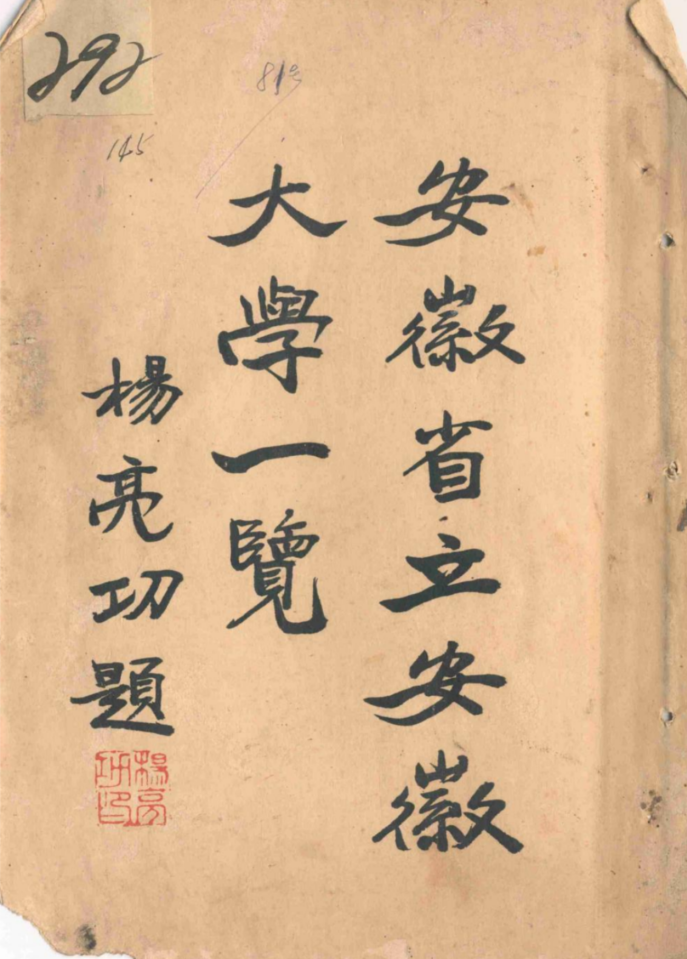 292
145
安徽省立安徽
大學一覽
楊亮功題
楊亮功印